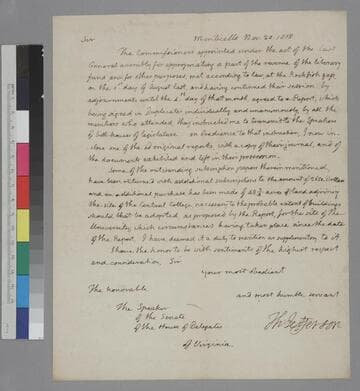 Sir
Monticello Nov. 20. 1818.
The Commissioners appointed under the act of the last
General assembly for appropriating a part of the revenue of the literary
fund and for other purposes, met according to law, at the Rockfish gap
on the 1st day of August last, and having continued their session by
adjournments until the 4th day of that month agreed to a Report, which
being signed in duplicates individually and unanimously by all the
members who attended, they instructed me to transmit to the Speakers
of both houses of legislature. in obedience to that instruction, I now in-
close one of the sd original reports, with a copy of their journal, and of
the documents exhibited and left in their possession.
Some of the outstanding subscription papers therein mentioned,
have been returned with additional subscriptions to the amount of
and an additional purchase has been made of acres of land adjoining
the site of the Central College necessary to the probable extent of buildings
should that be adopted, as proposed by the Report, for the site of the
University, which circumstances having taken place since the date
of the Report, I have deemed it a duty to mention as supplementory to it.
I have the honor to be with sentiments of the highest respect
and consideration, Sir
your most obedient
and most humble servant
Th Jefferson
The honorable
The Speaker
of the Senate
of the House of Delegates
of Virginia.